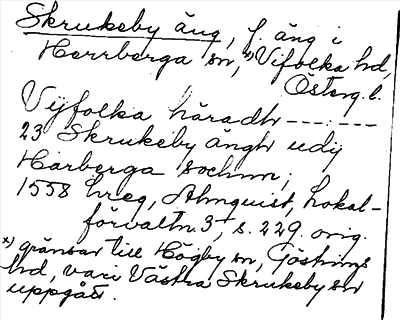 Skrukeby äng, f. äng i
Herrberga sn,*) Vifolka hd,
Österg. l.
Vijfolka häradh -------
23 Skrukeby ängh udij
Harberga sochnn;
1558 hreg, Almquist, Lokal-
förvaltn. 3, s. 229. orig.
*) gränsar till Högby sn, Göstrings
hd, vari Västra Skrukeby sn
uppgått.